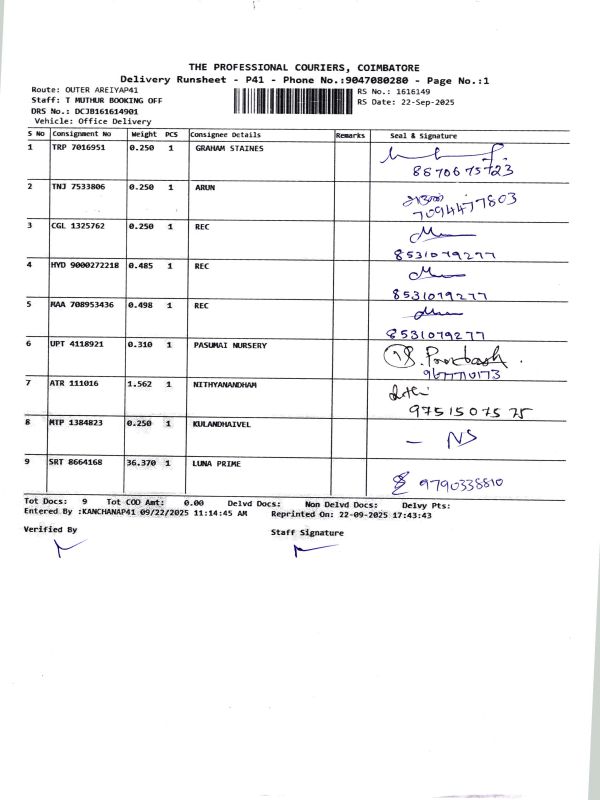 THE PROFESSIONAL COURIERS, COIMBATORE
Delivery Runsheet - P41 - Phone No.:9047080280 - Page No.:1
Route: OUTER AREIYAP41
RS No.: 1616149
Staff: T MUTHUR BOOKING OFF
RS Date: 22-Sep-2025
DRS No.: DCJB161614901
Vehicle: Office Delivery
S No Consignment No Weight PCS Consignee Details Remarks Seal & Signature
1 TRP 7016951 0.250 1 GRAHAM STAINES
8870675723
2 TNJ 7533806 0.250 1 ARUN
7094477803
3 CGL 1325762 0.250 1 REC
8531079277
4 HYD 9000272218 0.485 1 REC
8531079277
5 MAA 708953436 0.498 1 REC
8531079277
6 UPT 4118921 0.310 1 PASUMAI NURSERY
7 ATR 111016 1.562 1 NITHYANANDHAM
9751507575
8 MTP 1384823 0.250 1 KULANDHAIVEL
- NS
9 SRT 8664168 36.370 1 LUNA PRIME
9790338810
Tot Docs: 9 Tot COD Amt: 0.00 Delvd Docs: Non Delvd Docs: Delvy Pts:
Entered By :KANCHANAP41 09/22/2025 11:14:45 AM Reprinted On: 22-09-2025 17:43:43
Verified By Staff Signature